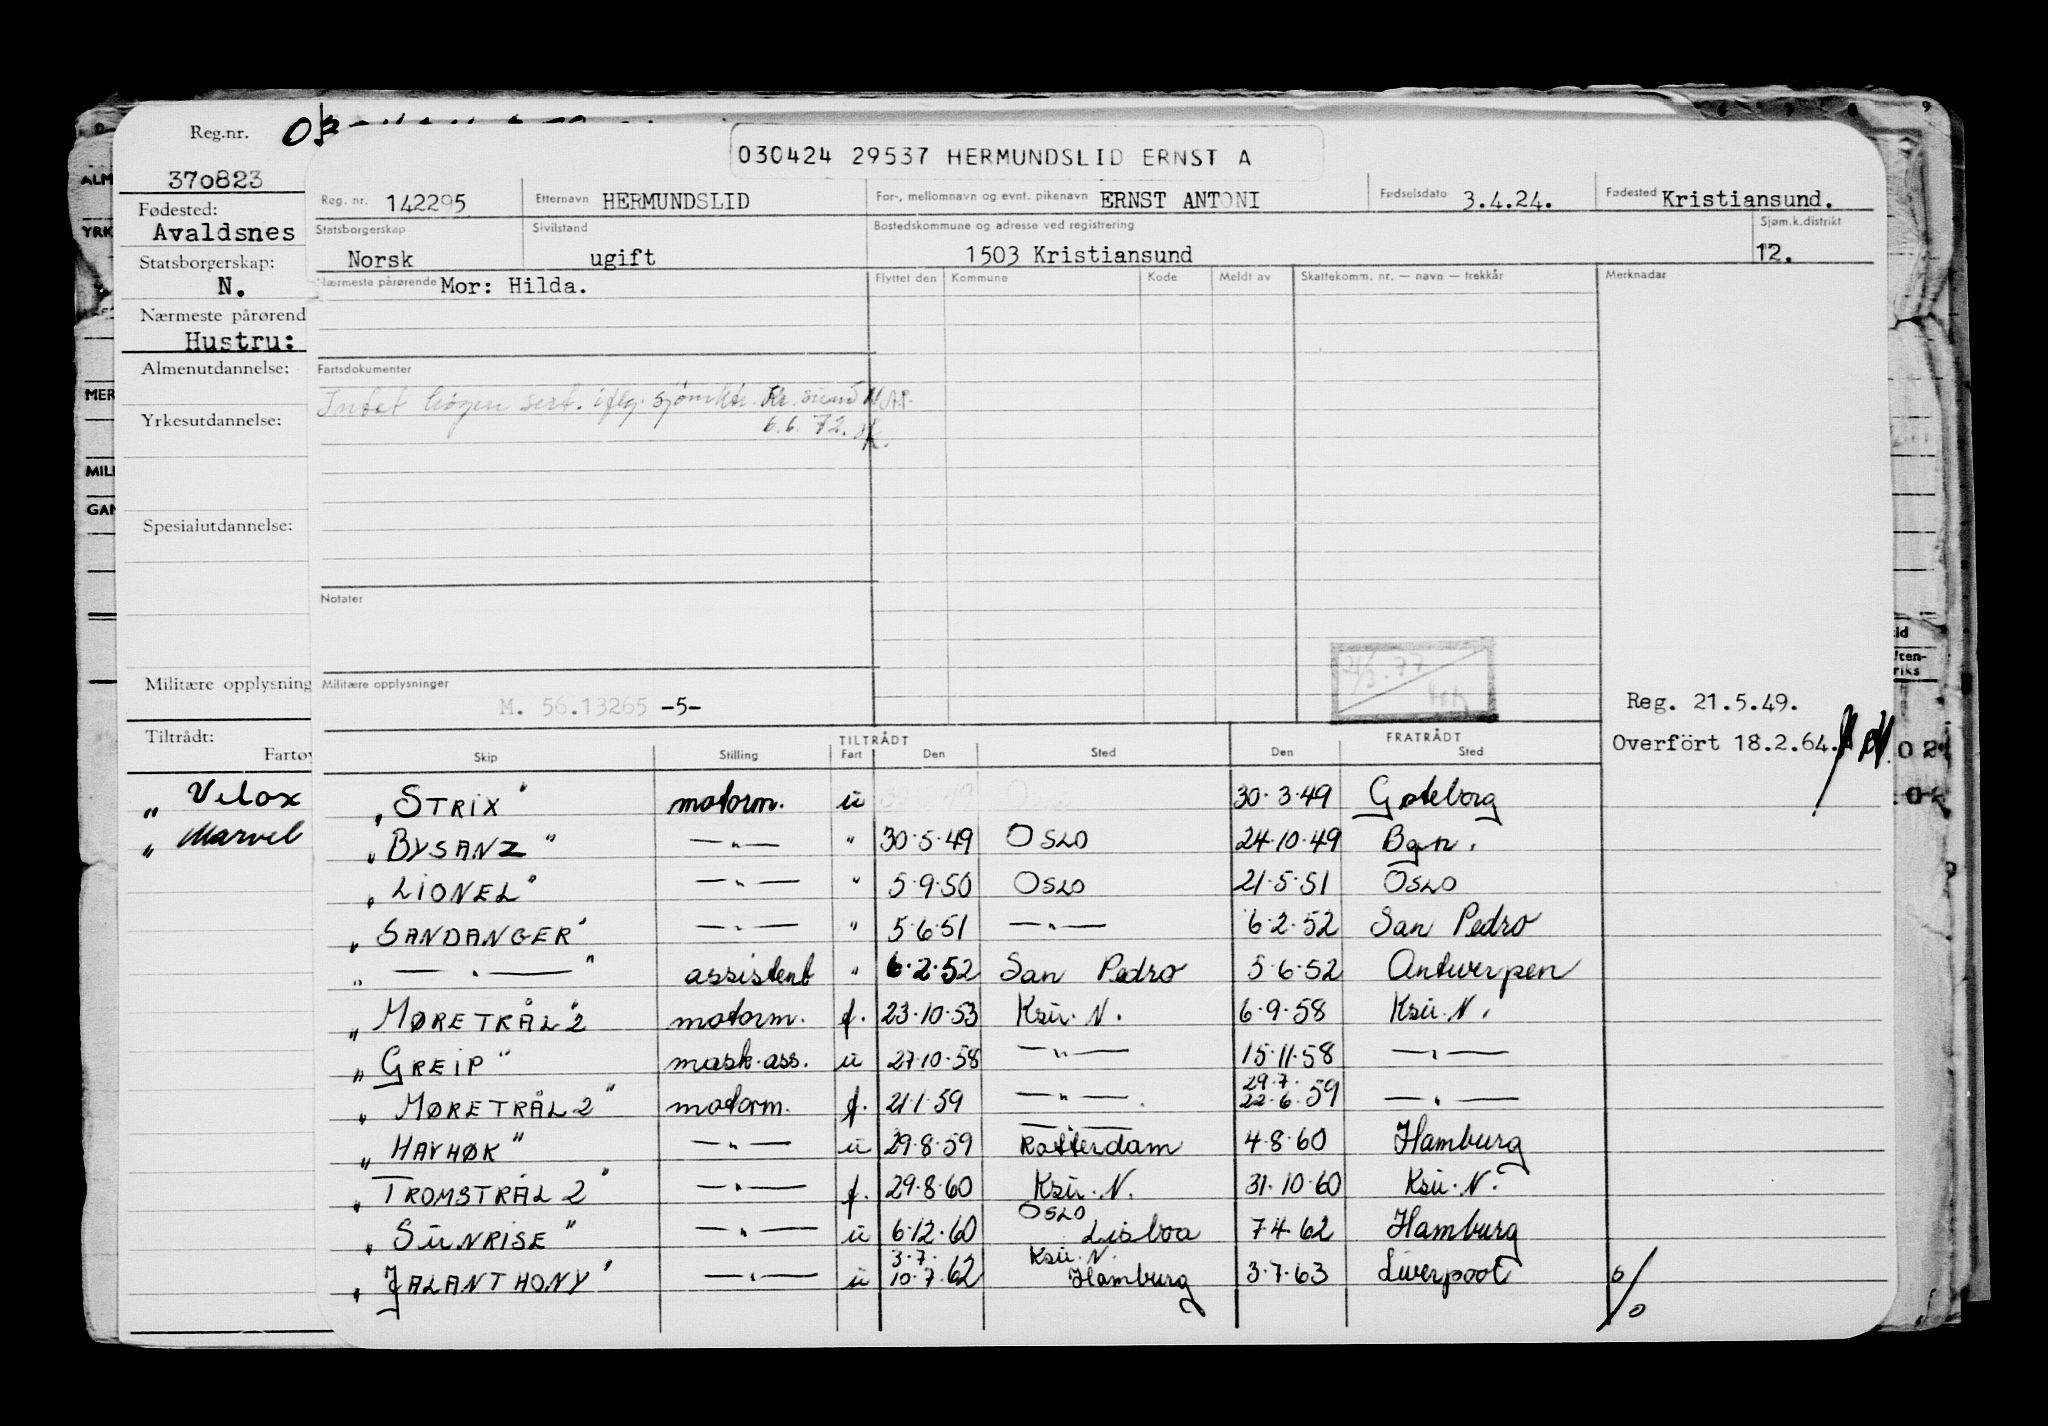 030424 29537 HERMUNDSLID ERNST A
Reg. nr. 142295 Etternavn HERMUNDSLID For-, mellomnavn og evnt. pikenavn ERNST ANTONI Fødselsdato 3.4.24. Fødested Kristiansund.
Statsborgerskap Norsk Sivilstand ugift Bostedskommune og adresse ved registrering 1503 Kristiansund Sjøm.k.distrikt 12.
Nærmeste pårørende Mor: Hilda. Flyttet den Kommune Kode Meldt av Skattekomm. nr. — navn — trekkår Merknader
Fartsdokumenter
Intet høyen sert. iflg. sjømktr. Kr.sund N
6.6.72.
Notater
Militære opplysninger
M. 56.13265 -5-
21/3.77
Reg. 21.5.49.
Overfört 18.2.64.
TILTRÅDT FRATRÅDT
Skip Stilling Fart Den Sted Den Sted
"STRIX" motorm. u 30·3·49 Gøteborg
"BYSANZ" —"— " 30·5·49 OSLO 24·10·49 Bgn.
"LIONEL" —"— " 5·9·50 OSLO 21·5·51 OSLO
"SANDANGER" —"— " 5·6·51 —"— 6·2·52 San Pedro
" —"— " assistent " 6·2·52 San Pedro 5·6·52 Antwerpen
"MØRETRÅL 2" motorm. f. 23·10·53 Ksu. N. 6·9·58 Ksu. N.
"GREIP" mask.ass. u 27·10·58 —"— 15·11·58 —"—
"MØRETRÅL 2" motorm. f. 21·1·59 —"— 29·7· 22·6·59 —"—
"HAVHØK" —"— u 29·8·59 Rotterdam 4·8·60 Hamburg
"TROMSTRÅL 2" —"— f. 29·8·60 Ksu. N. 31·10·60 Ksu. N.
"SUNRISE" —"— u 6·12·60 OSLO Lisboa 7·4·62 Hamburg
"JALANTHONY" —"— u 3·7· 10·7·62 Ksu. N. Hamburg 3·7·63 Liverpool
Reg.nr.
370823
Fødested:
Avaldsnes
Statsborgerskap:
N.
Nærmeste pårørend
Hustru:
Almenutdannelse:
Yrkesutdannelse:
Spesialutdannelse:
Militære opplysning
Tiltrådt:
Fartøy
" Velox
" Marvel
ALM
YRK
MER
MILI
GAN